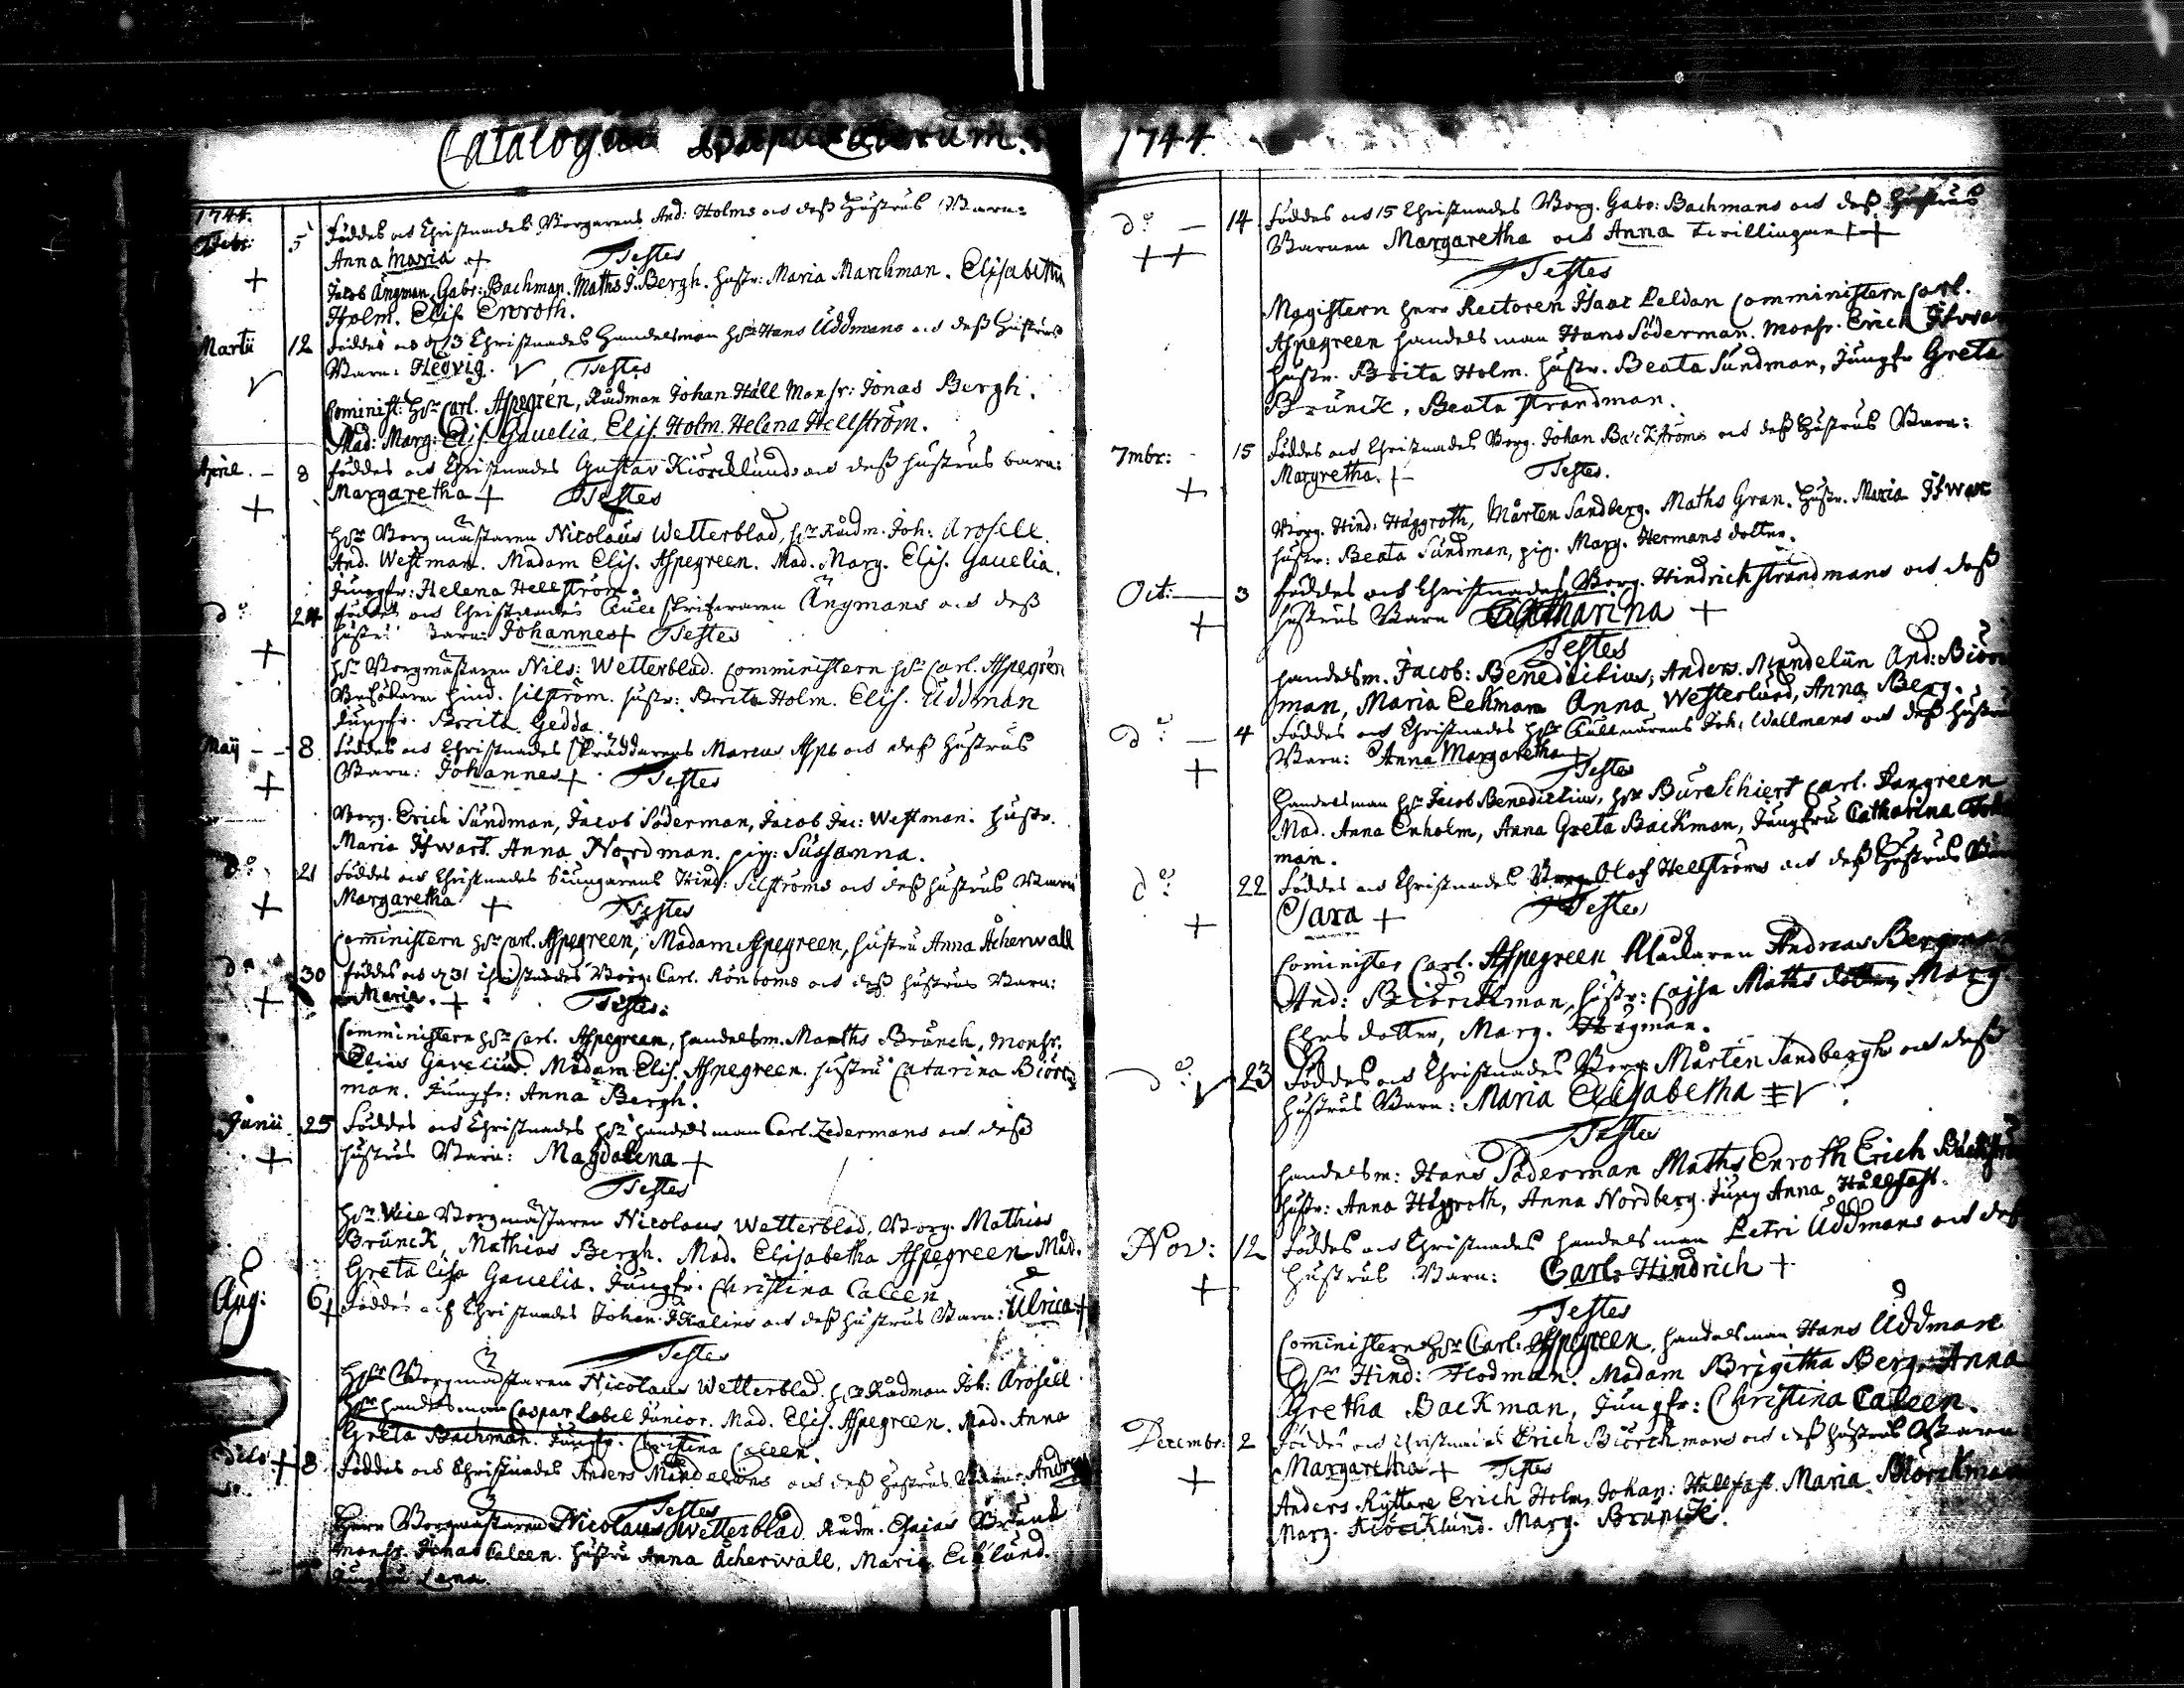 Catalogus Baptizatorum.
1744.
Febr: 5 Föddes och Christnades Borgarens And: Holms och deß Hustrus Barn:
Anna Maria + Testes
Jacob Ångman, Gabr: Bachman. Maths J. Bergh. hustr: Maria Marckman. Elisabetha
Holm. Elis Enroth.
Martii 12 Föddes och d 13 Christnades Handelsman Hr Hans Uddmans och deß Hustrus
Barn: Hedvig. Testes
Cominist: Hr Carl. Aspegren, Rådman Johan Häll Monsr: Jonas Bergh.
Mad: Marg: Elis Gavelia. Elis. Holm. Helena Hellström.
April. - 8 föddes och Christnades Gustav Kiörcklunds och deß hustrus barn:
Margaretha + Testes
Hr Borgmästaren Nicolaus Wetterblad, Hr Rådm. Joh: Arosell.
And. Westman. Madam Elis. Aspegreen. Mad. Marg. Elis. Gavelia.
Jungfr: Helena Hellström.
do 24 föddes och Christnades Ångmans och deß
hustrus Barn: Johannes + Testes
Hr Borgmästaren Nils: Wetterblad. Comministern Hr Carl. Aspegren
Besökaren Hind. Silström. hustr: Brita Holm. Elis. Uddman
Jungfr. Brita Gedda.
Maij - - 8 föddes och Christnades Skräddarens Marcus Asps och deß Hustrus
Barn: Johannes + Testes
Borg. Erich Sundman, Jacob Söderman, Jacob Jac: Westman. Hustr.
Maria Ifwars. Anna Nordman. pig: Sussanna.
do 21 föddes och Christnades Hind: Silströms och deß hustrus Barn
Margaretha + Testes
Comministern Hr Carl. Aspegreen, Madam Aspegreen, hustru Anna Åkerwall
do 30 föddes och d 31 Christnades Borg: Carl. Rönboms och deß hustrus Barn:
Maria. + Testes:
Comministern Hr Carl. Aspegreen, handelsm. Maths Brunck, Monsr.
Elias Gavelius. Madam Elis. Aspegreen. hustru Catarina Biörck
man. Jungfr: Anna Bergh.
Junii 25 Föddes och Christnades Hr handelsman Carl Zedermans och deß
hustrus Barn: Magdalena +
Testes
Hr Vice Borgmästaren Nicolaus Wetterblad, Borg. Mathias
Brunck, Mathias Bergh. Mad. Elisabetha Aspegreen Mad.
Greta Lisa Gavelia. Jungfr. Christina Caleen
Aug: 6 + föddes och Christnades Johan och deß hustrus Barn: Ulrica +
Testes
Hr Borgmästaren Nicolaus Wetterblad. Hr Rådman Joh: Arosell.
Hr handelsman Caspar Lobel Junior. Mad. Elis. Aspegreen. Mad. Anna
Greta Bachman. Jungfr. Christina Caleen.
dito + 8 föddes och Christnades Anders Mandelins och deß hustrus Barn: Andreas
Testes
Herr Borgmästaren Nicolaus Wetterblad. Rådm. Esaias Brunck
Monsr. Jonas Caleen. hustru Anna Åkerwall, Maria Ecklund.
Jungfru Lena.
1744.
do - 14 föddes och 15 Christnades Borg. Gabr: Bachmans och deß hustrus
++ Barnen Margaretha och Anna twillingar ++
Testes
Magistern Herr Rectoren Isaac Peldan Comministern Carl.
Aspegreen handelsman Hans Söderman. Monsr. Erich
hustr. Brita Holm. hustr. Beata Sundman, Jungfr Greta
Brunck, Beata Strandman.
7mbr: 15 föddes och Christnades Borg. Johan Backströms och deß Hustrus Barn:
+ Margretha. + Testes.
Borg. Hind: Häggroth, Mårten Sandberg. Maths Gran. hustr. Maria Ifwars
hustr: Beata Sundman, pig. Marg. Hermans dotter.
Oct: 3 föddes och Christnades Borg. Hindrich Strandmans och deß
+ hustrus Barn Catharina +
Testes
handelsm. Jacob: Benedictius, Anders. Mandelin And: Biörck
man, Maria Eckman Anna Westerlund, Anna Berg.
do - 4 föddes och Christnades Hr Joh: Wallmans och deß hustrus
+ Barn: Anna Margaretha +
Testes
Handelsman Hr Jacob Benedictius, Hr Burschiert Carl. Forgreen
Mad. Anna Enholm, Anna Greta Backman, Jungfru Catharina
man.
do 22 föddes och Christnades Borg. Olof Hellströms och deß hustrus Barn
+ Sara + Testes
Cominister Carl. Aspegreen Klåckaren Andreas Bergman
And: Biörckman, hustr: Cajsa Maths dotter, Marg.
Ehrs dotter, Marg. Hägman.
do 23 föddes och Christnades Borg: Mårten Sandberghs och deß
hustrus Barn: Maria Elisabetha
Testes
handelsm: Hans Söderman Maths Enroth Erich Backström
hustr: Anna Häggroth, Anna Nordberg. Jung Anna Hållfast.
Nov: 12 föddes och Christnades handelsman Petri Uddmans och deß
+ hustrus Barn: Carl Hindrich +
Testes
Comministern Hr Carl. Aspegreen, handelsman Hans Uddman
Hr Hind: Flodman. Madam Brigitha Berg. Anna
Gretha Backman, Jungfr: Christina Caleen.
Decembr: 2 föddes och Christnades Erich Biörckmans och deß hustrus Barn
+ Margaretha + Testes
Anders Ryttare Erich Holm, Johan: Hållfast. Maria Biörckman
Marg. Kiörcklund. Marg. Brunck.